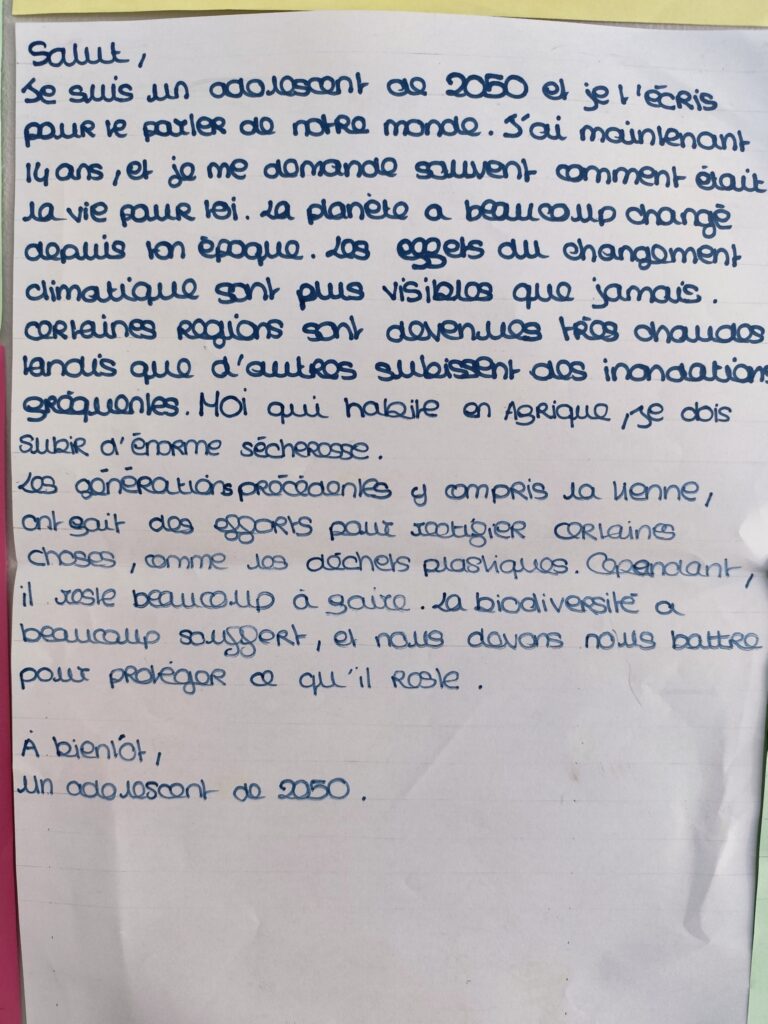 Salut,
Je suis un adolescent de 2050 et je t'écris
pour te parler de notre monde. J'ai maintenant
14 ans, et je me demande souvent comment était
la vie pour toi. La planète a beaucoup changé
depuis ton époque. Les effets du changement
climatique sont plus visibles que jamais.
Certaines régions sont devenues très chaudes
tandis que d'autres subissent des inondations
fréquentes. Moi qui habite en Afrique, je dois
subir d'énorme sécheresse.
Les générations précédentes y compris la tienne,
ont fait des efforts pour rectifier certaines
choses, comme les déchets plastiques. Cependant,
il reste beaucoup à faire. La biodiversité a
beaucoup souffert, et nous devons nous battre
pour protéger ce qu'il reste.
À bientôt,
un adolescent de 2050.